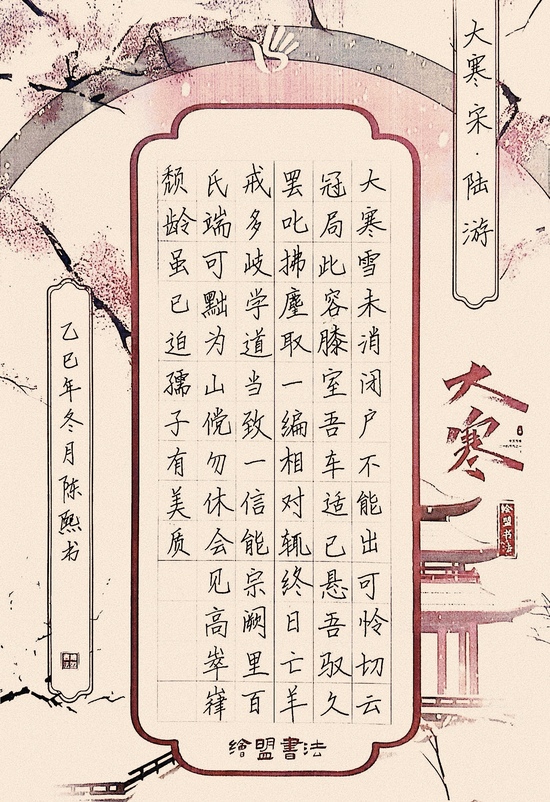 大寒 宋·陆游
大寒雪未消闭户不能出可怜切云
冠局此容膝室吾车适已悬吾驭久
罢叱拂塵取一编相对辄终日亡羊
戒多歧学道当致一信能宗阙里百
氏端可黜为山傥勿休会见高崒嵂
颓龄虽已迫孺子有美质
乙巳年冬月陈熙书
大寒
绘盟书法
繪盟書法